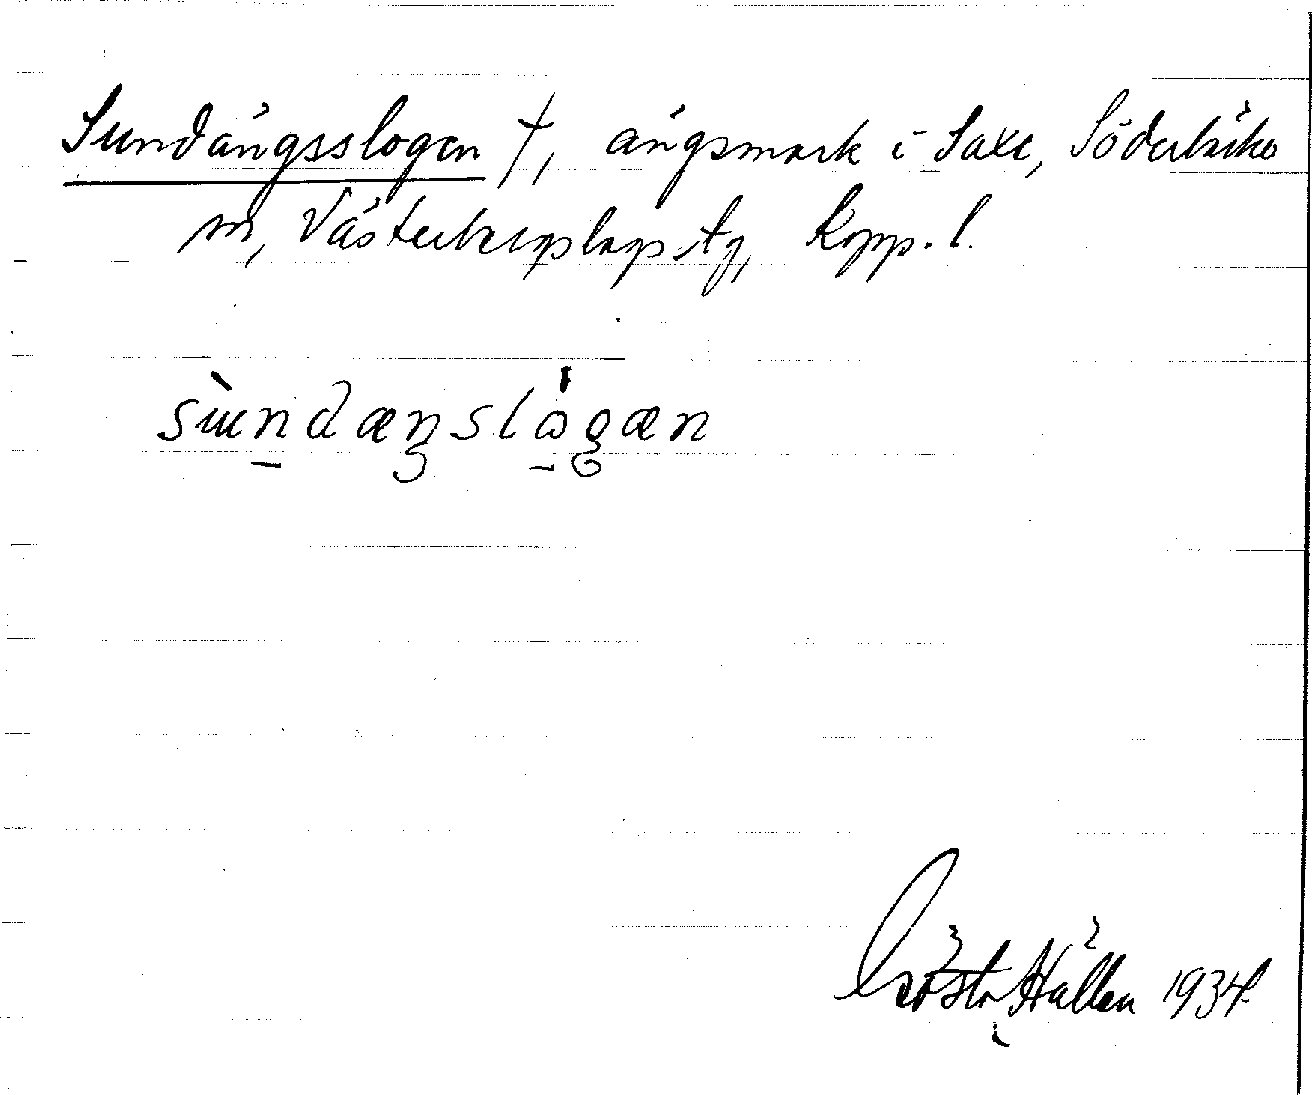 Sundängsslogen †, ängsmark i Saxe, Söderbärke
sn, Västerbergslags tg, Kopp. l.
sundænslogæn
Gösta Hällen 1934